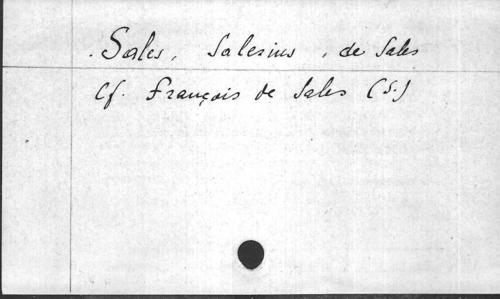 . Sales, Salesius, de Sales
Cf. François de Sales (S.)